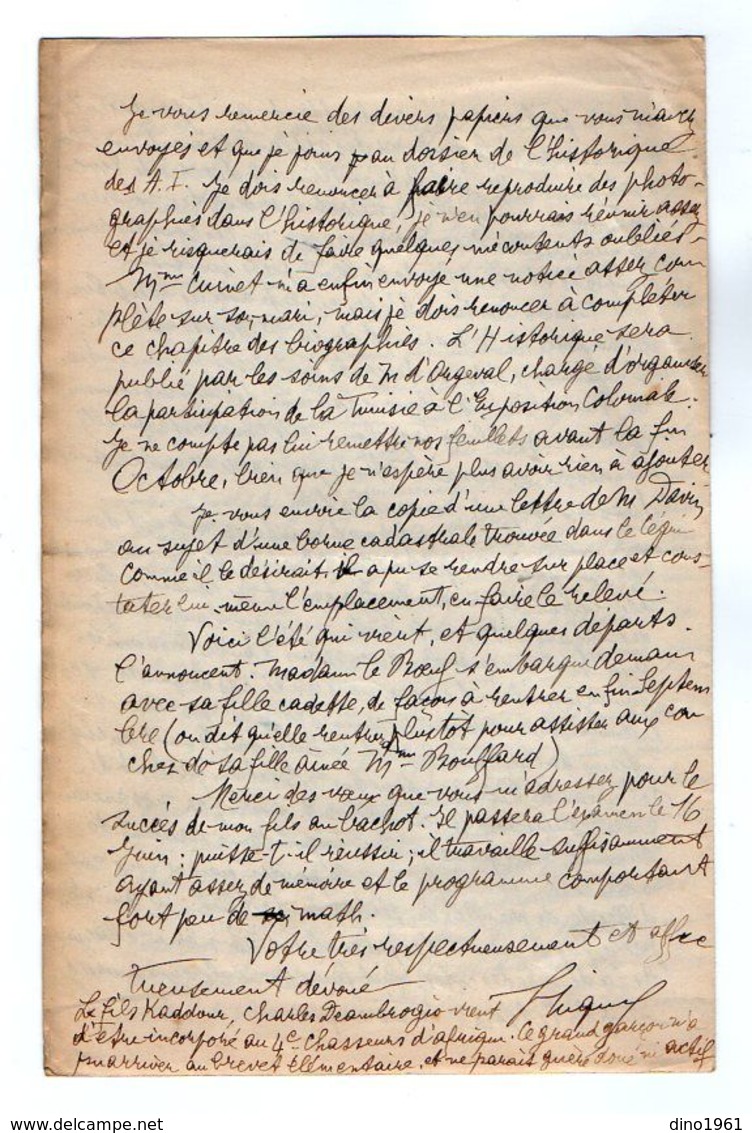 Je vous remercie des divers papiers que vous m'avez
envoyés et que je joins au dossier de l'historique
des A. I. Je dois renoncer à faire reproduire des photo-
graphies dans l'historique, je n'en pourrais réunir assez
et je risquerais de faire quelques mécontents oubliés -
Mme Cuinet m'a enfin envoyé une notice assez com
plète sur son mari, mais je dois renoncer à compléter
ce chapitre des biographies. L'Historique sera
publié par les soins de M d'Orgeval, chargé d'organiser
la participation de la Tunisie à l'Exposition Coloniale.
Je ne compte pas lui remettre nos feuillets avant la fin
Octobre, bien que je n'espère plus avoir rien à ajouter
Je vous envoie la copie d'une lettre de M Davin
au sujet d'une borne cadastrale trouvée dans le
comme il le désirait, il a pu se rendre sur place et cons-
tater lui-même l'emplacement, en faire le relevé.
Voici l'été qui vient, et quelques départs
l'annoncent. Madame le Boeuf s'embarque demain
avec sa fille cadette, de façon à rentrer en fin Septem
bre (on dit qu'elle rentrera plutôt pour assister aux cou
ches de sa fille aînée Mme Bouffard)
Merci des voeux que vous m'adressez pour le
succès de mon fils au bachot. Il passera l'examen le 16
Juin : puisse-t-il réussir ; il travaille suffisamment
ayant assez de mémoire et le programme comportant
fort peu de math.
Votre très respectueusement et affec
tueusement dévoué
Le fils Kaddour, Charles Deambrogio vient
d'être incorporé au 4e chasseurs d'afrique. Ce grand garçon n'a
pu arriver au brevet élémentaire. et ne paraît guère doué ni actif
dino1961